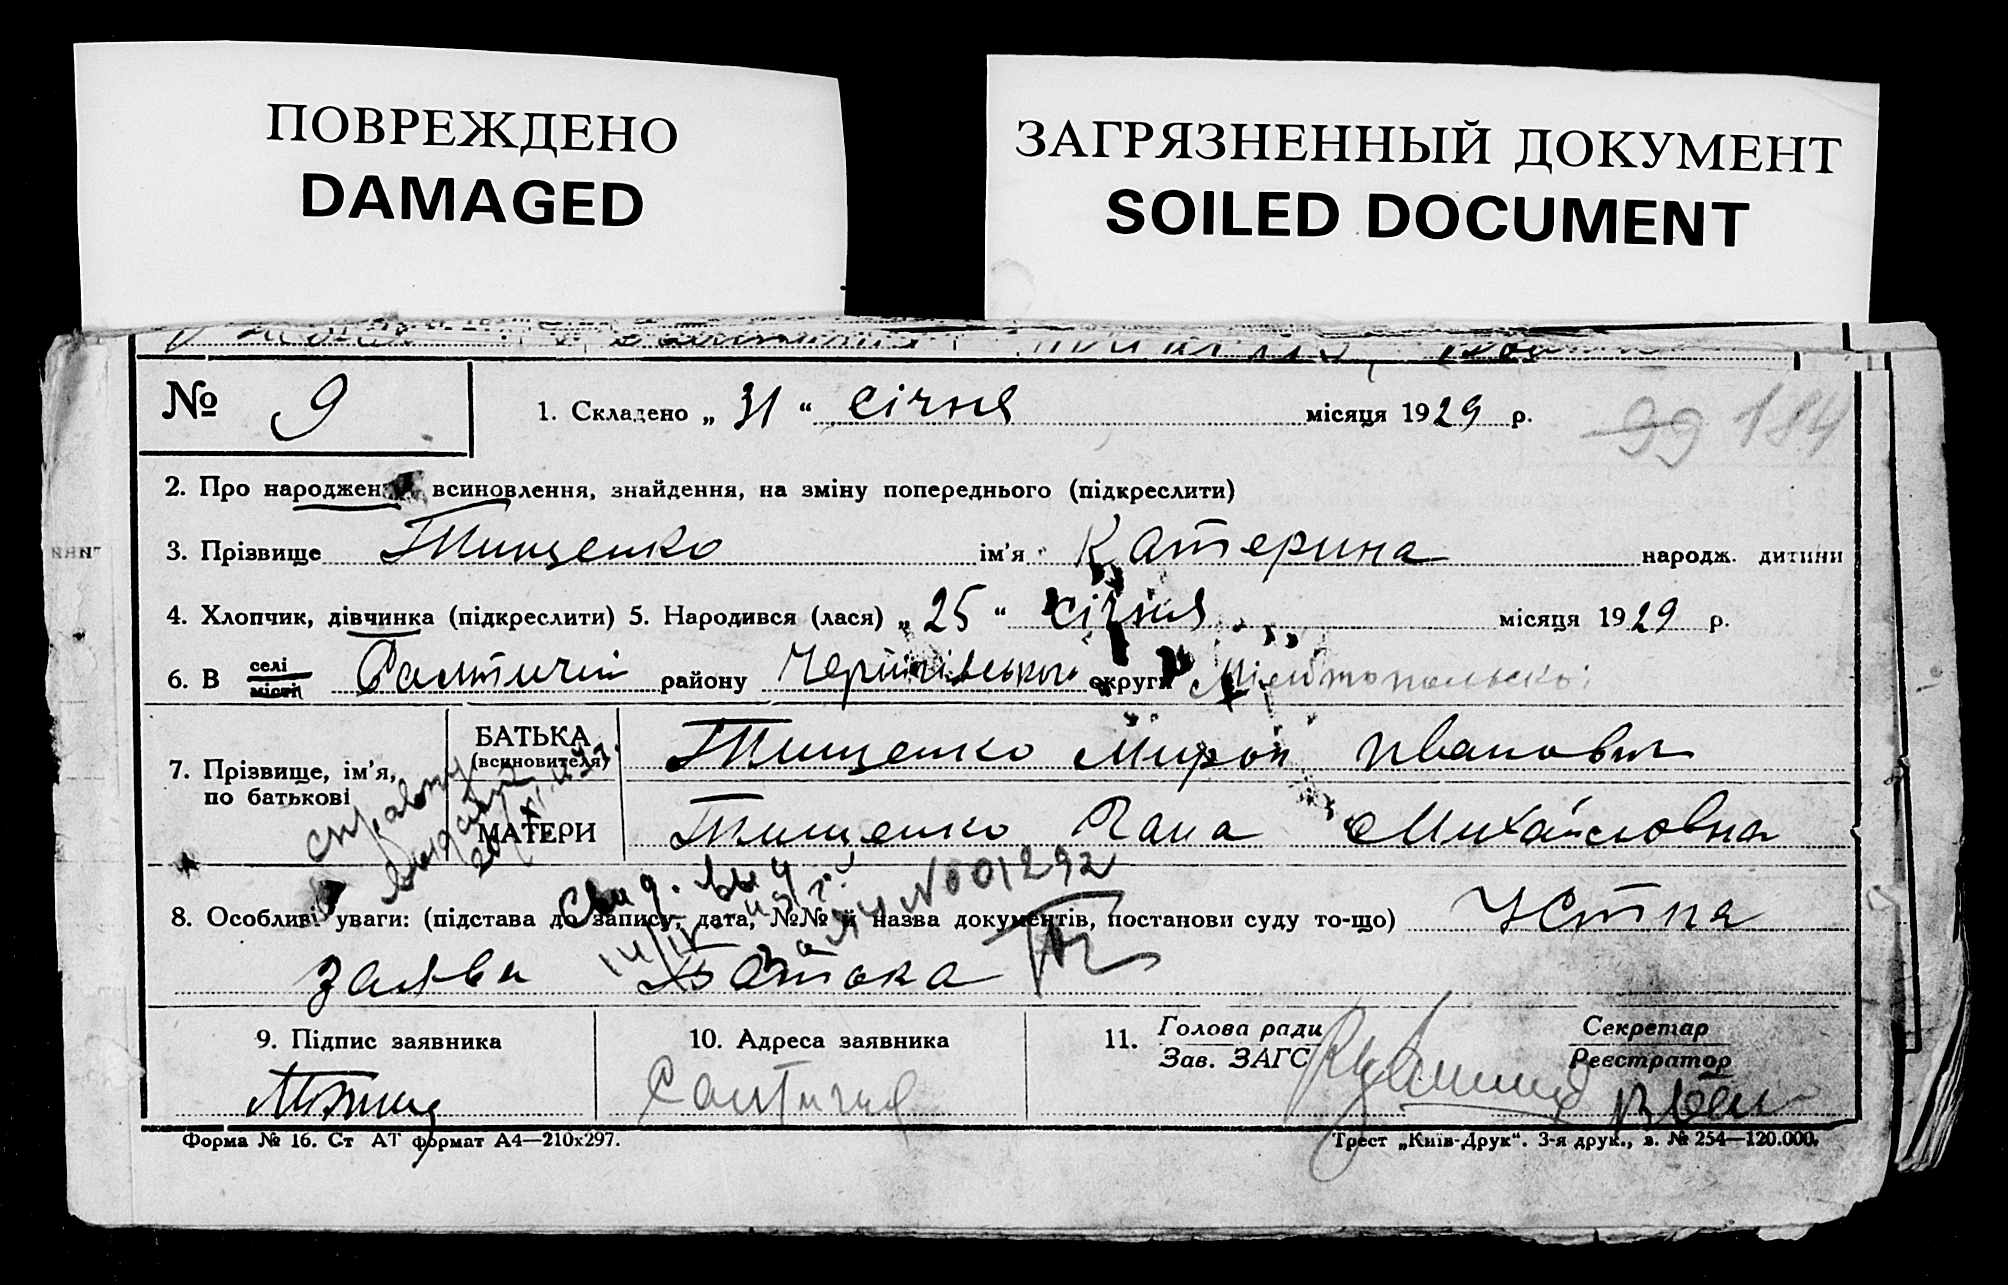 ПОВРЕЖДЕНО
DAMAGED
ЗАГРЯЗНЕННЫЙ ДОКУМЕНТ
SOILED DOCUMENT
№ 9
1. Складено „ 31 “ січня місяця 1929 р.
99 184
2. Про народжен всиновлення, знайдення, на зміну попереднього (підкреслити)
3. Прізвище Тищенко ім'я Катерина народж. дитини
4. Хлопчик, дівчинка (підкреслити) 5. Народився (лася) „ 25 “ січня місяця 1929 р.
6. В селі місті Салтичії району Чернігівського округи
7. Прізвище, ім'я, по батькові
БАТЬКА (всиновителя) Тищенко Мирон Иванович
МАТЕРИ Тищенко Гана Михайловна
справку
Свид. выд.
№ 001292
8. Особливі уваги: (підстава до запису, дата, №№ й назва документів, постанови суду то-що) Устна
заява Батька
9. Підпис заявника
10. Адреса заявника
11. Голова ради Зав. ЗАГС
Секретар Реєстратор
Салтичия
Форма № 16. Ст АТ формат А4—210x297.
Трест „Київ-Друк“. 3-я друк., з. № 254—120.000.